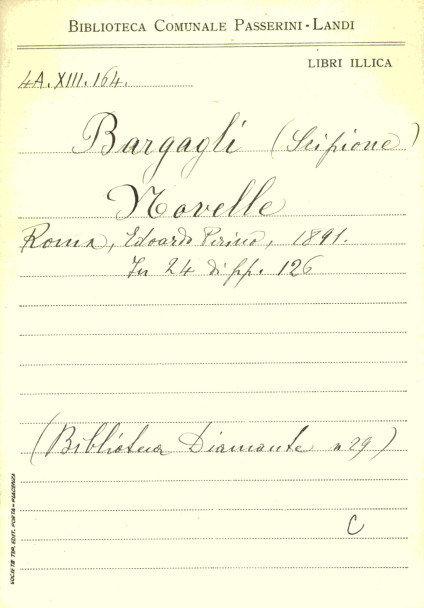 BIBLIOTECA COMUNALE PASSERINI-LANDI
LIBRI ILLICA
4A.XIII.164.
Bargagli (Scipione)
Novelle
Roma, Edoardo Perino, 1891.
In 24 di pp. 126
(Biblioteca Diamante n 29)
C
SOCIETÀ TIP. EDIT. PORTA - PIACENZA